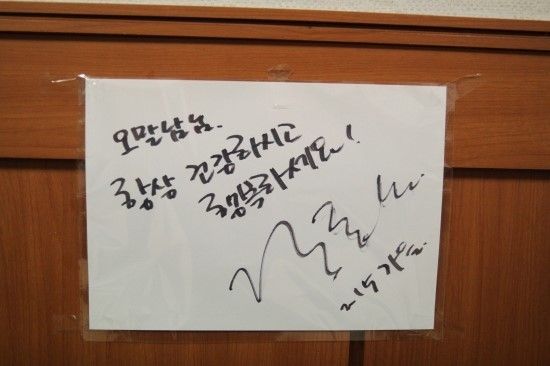 오말남님.
항상 건강하시고
행복하세요!
가을.